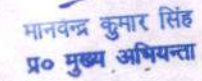 मानवेन्द्र कुमार सिंह
प्र० मुख्य अभियन्ता